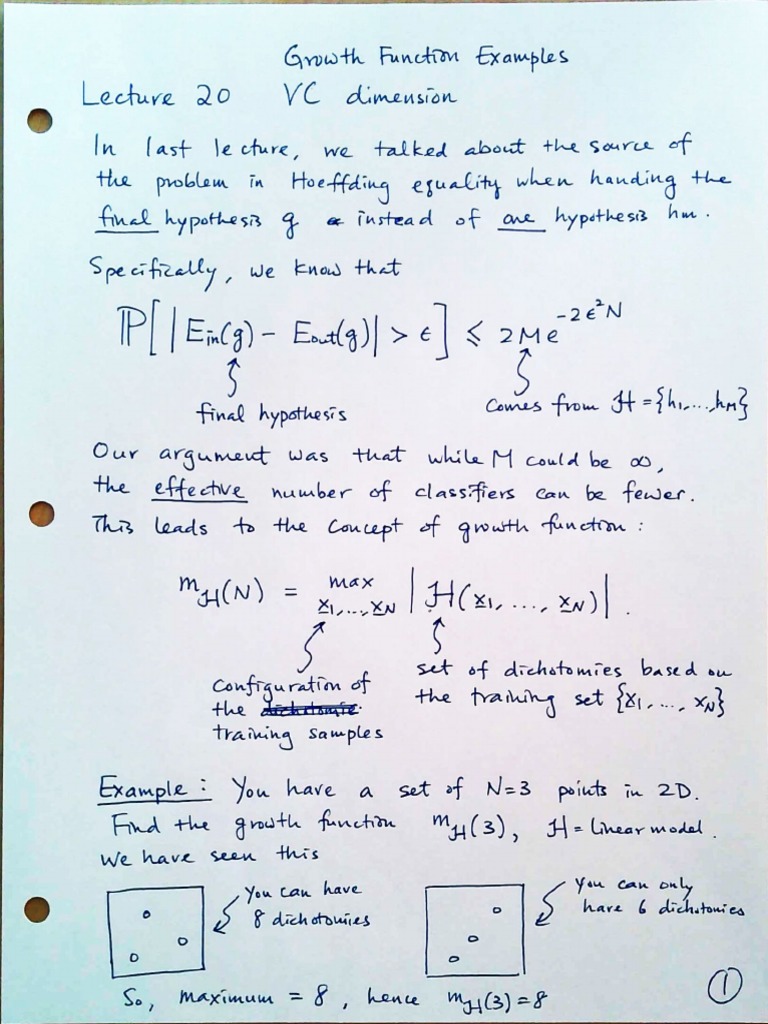 Growth Function Examples
Lecture 20 VC dimension
In last lecture, we talked about the source of
the problem in Hoeffding equality when handing the
final hypothesis g instead of one hypothesis hm.
Specifically, we know that
ℙ[|Ein(g) − Eout(g)| > ϵ] ≤ 2Me^{-2ϵ²N}
final hypothesis
comes from ℋ = {h1, ..., hM}
Our argument was that while M could be ∞,
the effective number of classifiers can be fewer.
This leads to the concept of growth function :
mℋ(N) = max x1, ..., xN |ℋ(x1, ..., xN)|.
configuration of
the
training samples
set of dichotomies based on
the training set {x1, ..., xN}
Example : You have a set of N=3 points in 2D.
Find the growth function mℋ(3), ℋ = linear model.
We have seen this
You can have
8 dichotomies
You can only
have 6 dichotomies
So, maximum = 8, hence mℋ(3)=8
1